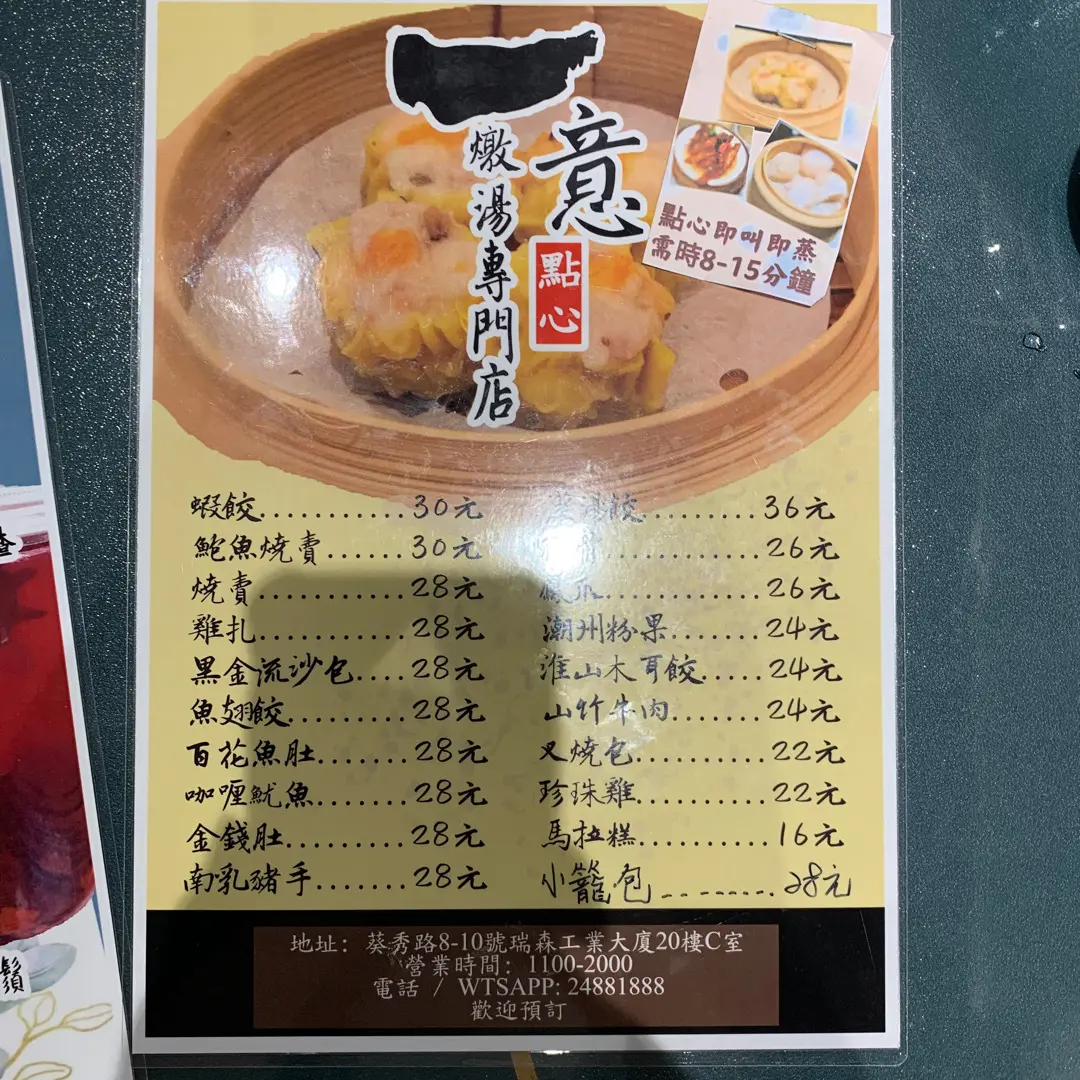 一意
點心
燉湯專門店
點心即叫即蒸
需時8-15分鐘
蝦餃............30元
鮑魚燒賣......30元
燒賣............28元
雞扎............28元
黑金流沙包....28元
魚翅餃.........28元
百花魚肚.......28元
咖喱魷魚.......28元
金錢肚.........28元
南乳豬手.......28元
餃.........36元
............26元
............26元
潮州粉果.......24元
淮山木耳餃.....24元
山竹牛肉.......24元
叉燒包.........22元
珍珠雞..........22元
馬拉糕..........16元
小籠包.........28元
地址: 葵秀路8-10號瑞森工業大廈20樓C室
營業時間: 1100-2000
電話 / WTSAPP: 24881888
歡迎預訂
楂
鬚